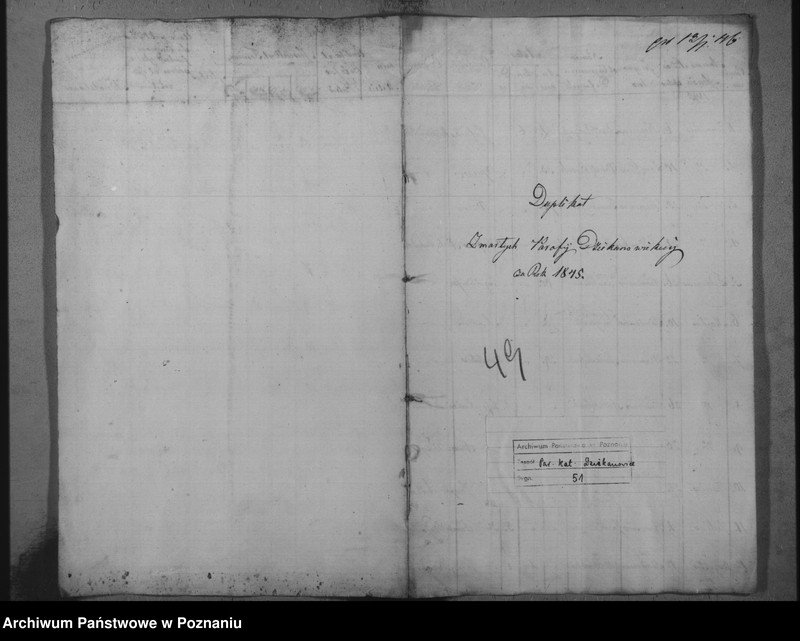 Duplikat
Zmarłych Parafij Dziekanowickiéj
za Rok 1845.
49
Archiwum Państwowe w Poznaniu
Par. kat. Dziekanowice
51
Archiwum Państwowe w Poznaniu